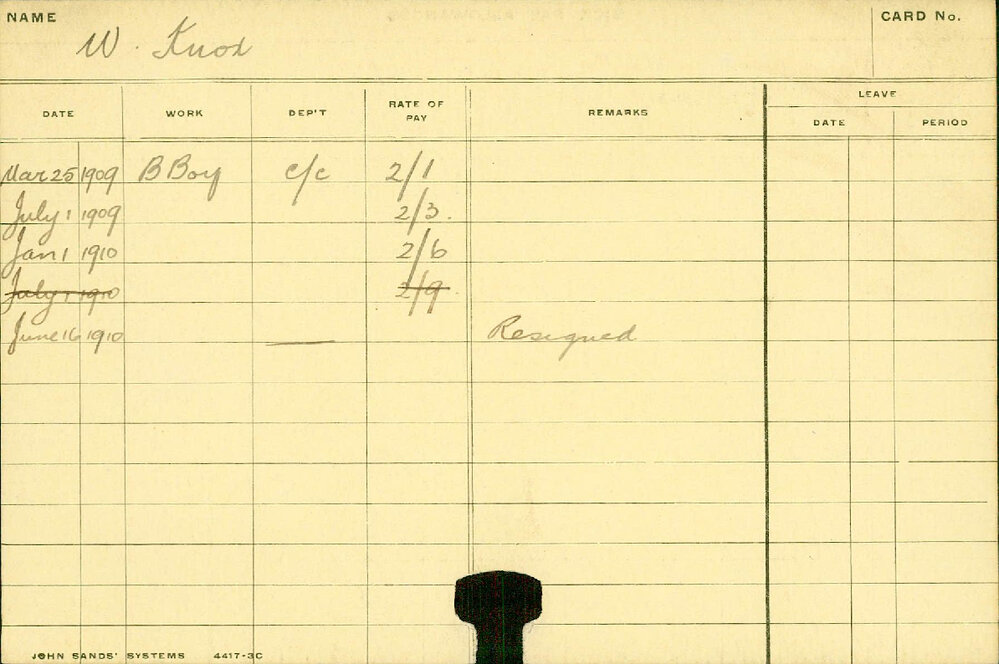 NAME
W. Knox
CARD No.
DATE WORK DEP'T RATE OF PAY REMARKS LEAVE
DATE PERIOD
Mar 25 1909 B Boy c/c 2/1
July 1 1909 2/3.
Jan 1 1910 2/6
July 1 1910 2/9
June 16 1910 Resigned
JOHN SANDS' SYSTEMS 4417-3C